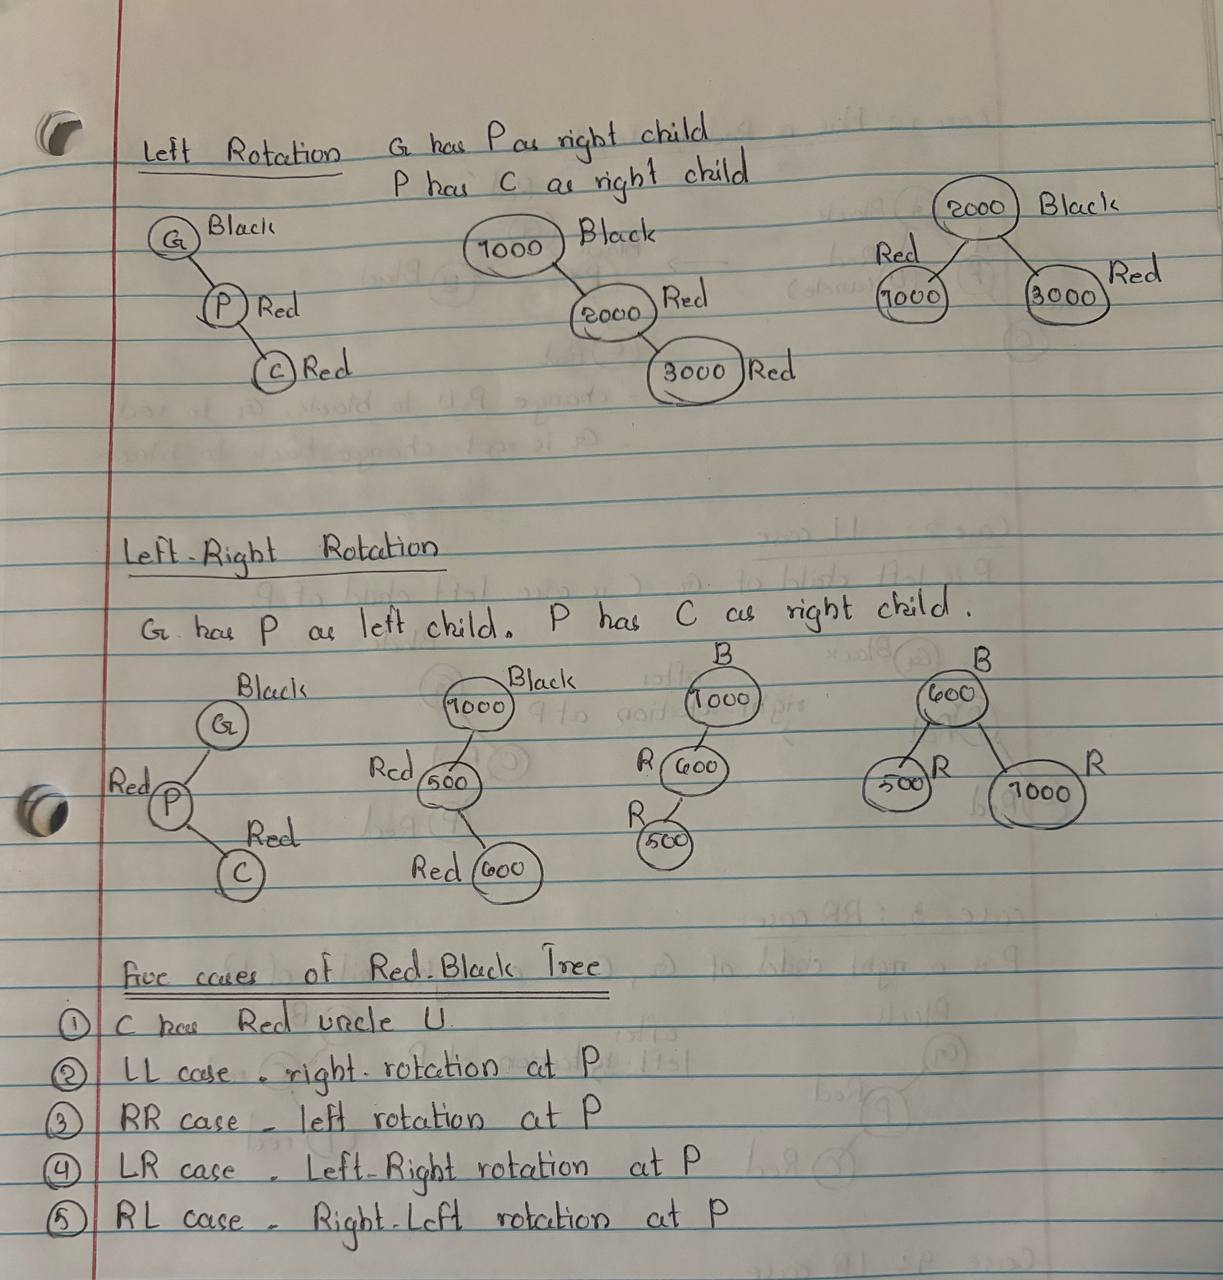 Left Rotation G has P as right child
P has C as right child
G Black
P Red
C Red
1000 Black
2000 Red
3000 Red
2000 Black
Red
1000
3000 Red
Left-Right Rotation
G has P as left child. P has C as right child.
Black
G
Red P
Red
C
1000 Black
Red 500
Red 600
B
1000
R 600
R
500
B
600
500 R
1000 R
Five cases of Red-Black Tree
① C has Red uncle U.
② LL case - right-rotation at P
③ RR case - left rotation at P
④ LR case - Left-Right rotation at P
⑤ RL case - Right-Left rotation at P